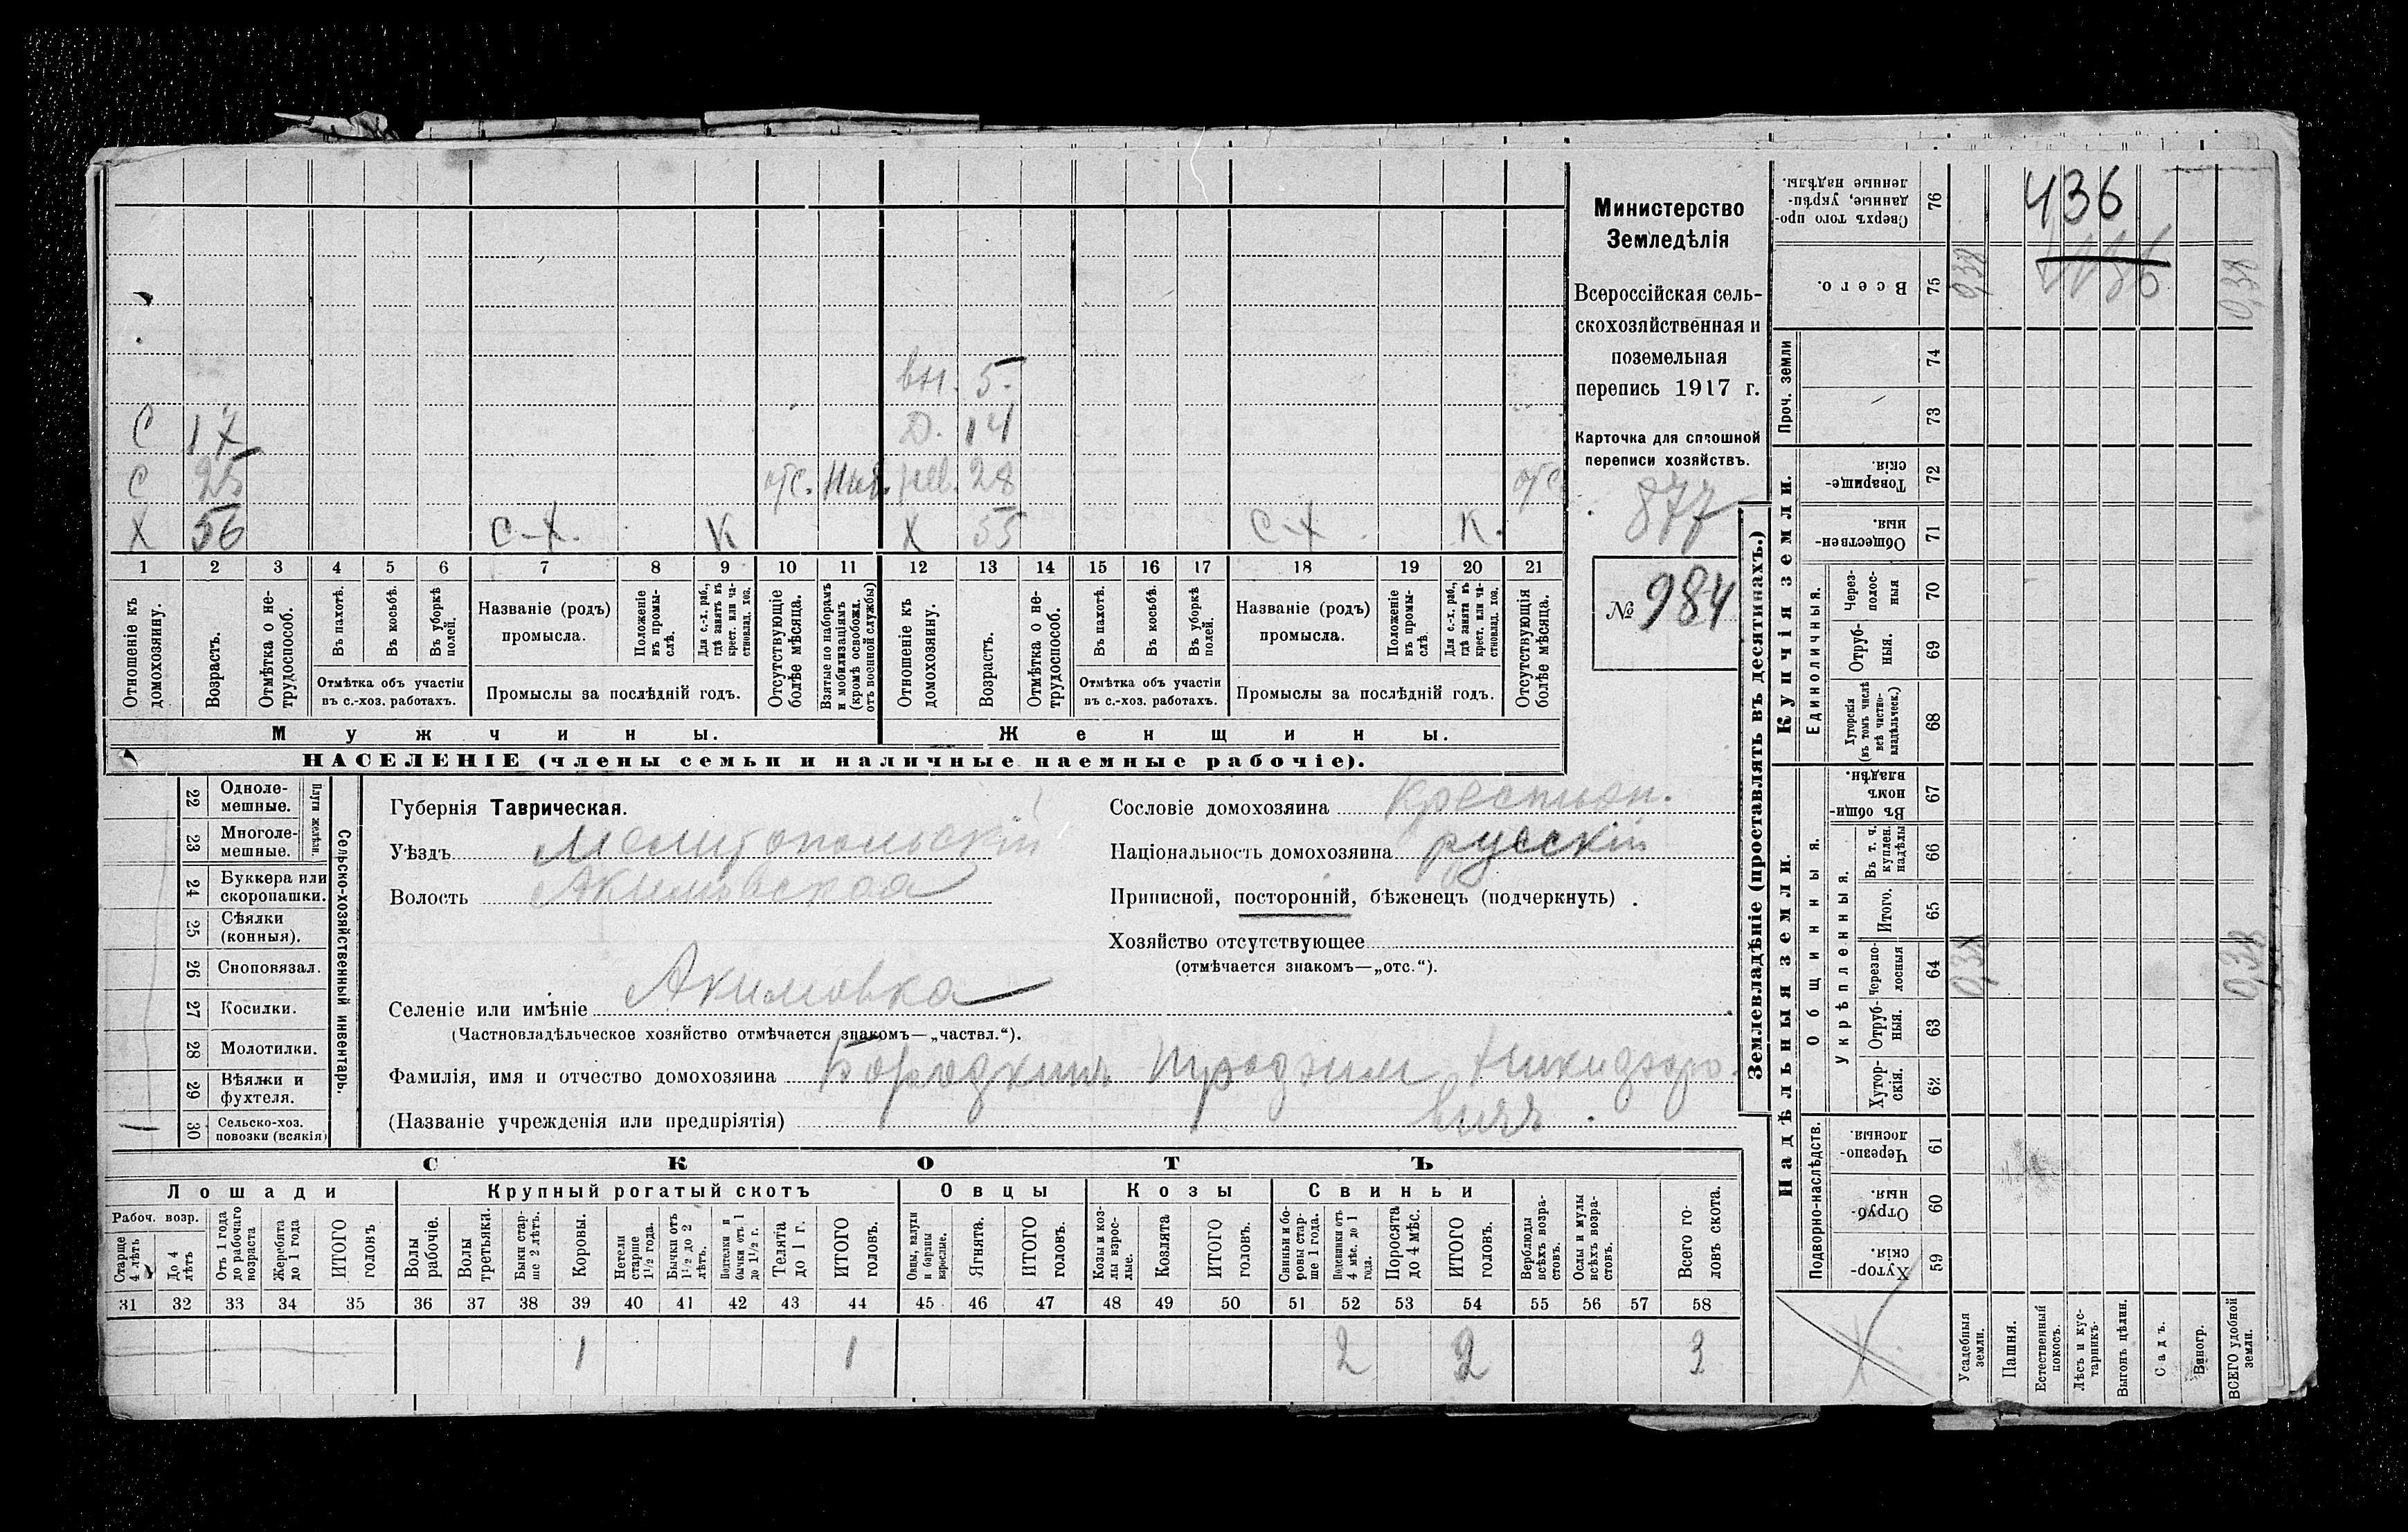 вн. 5.
С 17 Д. 14
С 25 отс. нев. 28 отс
Х 56 С-Х. К Х 55 С-Х К.
1 2 3 4 5 6 7 8 9 10 11 12 13 14 15 16 17 18 19 20 21
Отношеніе къ домохозяину.
Возрастъ.
Отмѣтка о нетрудоспособ.
Въ пахотѣ.
Въ косьбѣ.
Въ уборкѣ полей.
Отмѣтка объ участіи
въ с.-хоз. работахъ.
Названіе (родъ)
промысла.
Положеніе въ промыслѣ.
Для с.-х. раб., гдѣ занятъ въ крест. или частновлад. хоз.
Промыслы за послѣдній годъ.
Отсутствующіе болѣе мѣсяца.
Взятые по наборамъ и мобилизаціямъ (кромѣ освобожд. отъ военной службы)
Отношеніе къ домохозяину.
Возрастъ.
Отмѣтка о нетрудоспособ.
Въ пахотѣ.
Въ косьбѣ.
Въ уборкѣ полей.
Отмѣтка объ участіи
въ с.-хоз. работахъ.
Названіе (родъ)
промысла.
Положеніе въ промыслѣ.
Для с.-х. раб., гдѣ занята въ крест. или частновлад. хоз.
Промыслы за послѣдній годъ.
Отсутствующія болѣе мѣсяца.
Мужчины.
Женщины.
НАСЕЛЕНІЕ (члены семьи и наличные наемные рабочіе).
Министерство
Земледѣлія
Всероссійская сель-
скохозяйственная и
поземельная
перепись 1917 г.
Карточка для сплошной
переписи хозяйствъ.
877
№ 984
22 Одноле-
мешные.
23 Многоле-
мешные.
Плуги желѣзн.
24 Буккера или
скоропашки.
25 Сѣялки
(конныя).
26 Сноповязал.
27 Косилки.
28 Молотилки.
29 Вѣялки и
фухтеля.
30 Сельско-хоз.
повозки (всякія)
Сельско-хозяйственный инвентарь.
Губернія Таврическая.
Уѣздъ Мелитопольскій
Волость Акимовская
Селеніе или имѣніе Акимовка
(Частновладѣльческое хозяйство отмѣчается знакомъ—„частвл.“).
Фамилія, имя и отчество домохозяина Бородкинъ
(Названіе учрежденія или предпріятія)
Сословіе домохозяина крестьян.
Національность домохозяина русскій
Приписной, посторонній, бѣженецъ (подчеркнуть)
Хозяйство отсутствующее
(отмѣчается знакомъ—„отс.“).
СКОТЪ
Лошади
Рабоч. возр.
Старще 4 лѣтъ
До 4 лѣтъ
Отъ 1 года до рабочаго возраста
Жеребята до 1 года
ИТОГО головъ
Крупный рогатый скотъ
Волы рабочіе.
Волы третьяки.
Быки старше 2 лѣтъ.
Коровы.
Нетели старше 1½ года.
Бычки отъ 1½ до 2 лѣтъ.
Подтелки и бычки отъ 1 до 1½ г.
Телята до 1 г.
ИТОГО головъ.
Овцы
Овцы, валухи и бараны взрослые.
Ягнята.
ИТОГО головъ.
Козы
Козы и козлы взрослые.
Козлята
ИТОГО головъ.
Свиньи
Свиньи и боровы старше 1 года.
Подсвинки отъ 4 мѣс. до 1 года.
Поросята до 4 мѣс.
ИТОГО головъ.
Верблюды всѣхъ возрастовъ.
Ослы и мулы всѣхъ возрастовъ.
Всего головъ скота.
31 32 33 34 35 36 37 38 39 40 41 42 43 44 45 46 47 48 49 50 51 52 53 54 55 56 57 58
1 1 2 2 3
Землевладѣніе (проставлять въ десятинахъ.)
Купчія земли.
Надѣльныя земли.
Сверхъ того проданные, укрѣпленные надѣлы. 76
Всего. 75
Проч. земли
74
73
Товарищескія. 72
Общественныя. 71
Единоличныя.
Черезполосныя 70
Отрубныя. 69
Хуторскія (въ томъ числѣ всѣ частновладѣльческ.) 68
Общинныя.
Въ общинномъ владѣн. 67
Укрѣпленныя.
Въ т. ч. куплен. надѣлы 66
Итого. 65
Черезполосныя 64
Отрубныя. 63
Хуторскія. 62
Подворно-наслѣдств.
Черезполосныя 61
Отрубныя. 60
Хуторскія. 59
Усадебныя земли.
Пашня.
Естественный покосъ.
Лѣсъ и кустарникъ.
Выгонъ цѣлин.
Садъ.
Виногр.
ВСЕГО удобной земли.
436
0,38
0,38
0,38
0,38